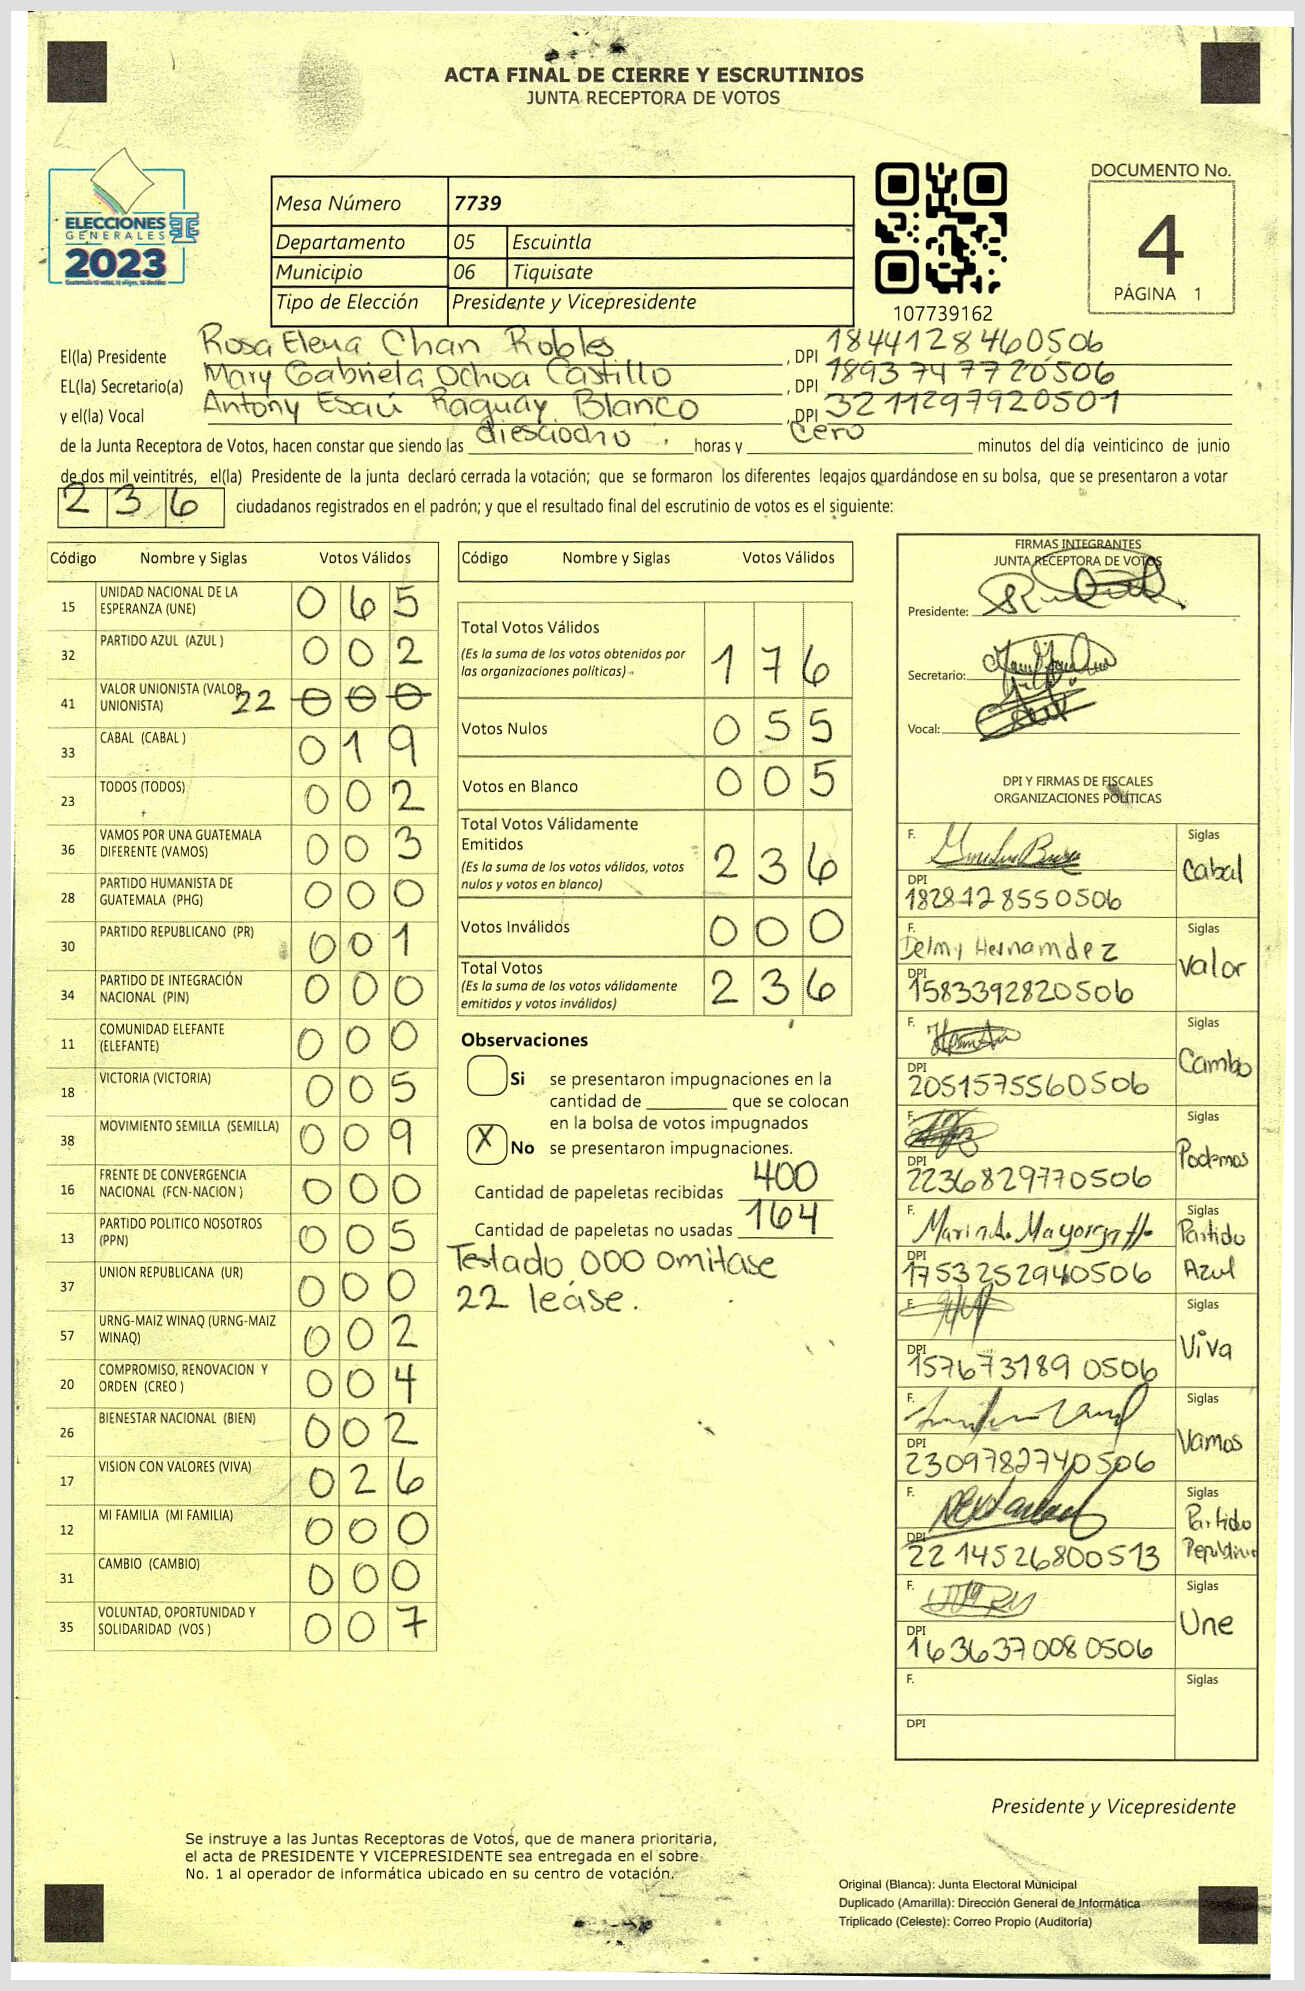 ACTA FINAL DE CIERRE Y ESCRUTINIOS
JUNTA RECEPTORA DE VOTOS
ELECCIONES
GENERALES
2023
Mesa Número 7739
Departamento 05 Escuintla
Municipio 06 Tiquisate
Tipo de Elección Presidente y Vicepresidente
107739162
DOCUMENTO No.
4
PÁGINA 1
El(la) Presidente Rosa Elena Chan Robles, DPI 1844128460506
EL(la) Secretario(a) Mary Gabriela Ochoa Castillo, DPI 1893747720506
y el(la) Vocal Antony Esaú Raguay Blanco, DPI 3211297920501
de la Junta Receptora de Votos, hacen constar que siendo las diesciocho horas y cero minutos del día veinticinco de junio
de dos mil veintitrés, el(la) Presidente de la junta declaró cerrada la votación; que se formaron los diferentes legajos guardándose en su bolsa, que se presentaron a votar
236 ciudadanos registrados en el padrón; y que el resultado final del escrutinio de votos es el siguiente:
Código Nombre y Siglas Votos Válidos
15 UNIDAD NACIONAL DE LA ESPERANZA (UNE) 065
32 PARTIDO AZUL (AZUL ) 002
41 VALOR UNIONISTA (VALOR UNIONISTA) 22 000
33 CABAL (CABAL ) 019
23 TODOS (TODOS) 002
36 VAMOS POR UNA GUATEMALA DIFERENTE (VAMOS) 003
28 PARTIDO HUMANISTA DE GUATEMALA (PHG) 000
30 PARTIDO REPUBLICANO (PR) 001
34 PARTIDO DE INTEGRACIÓN NACIONAL (PIN) 000
11 COMUNIDAD ELEFANTE (ELEFANTE) 000
18 VICTORIA (VICTORIA) 005
38 MOVIMIENTO SEMILLA (SEMILLA) 009
16 FRENTE DE CONVERGENCIA NACIONAL (FCN-NACION ) 000
13 PARTIDO POLITICO NOSOTROS (PPN) 005
37 UNION REPUBLICANA (UR) 000
57 URNG-MAIZ WINAQ (URNG-MAIZ WINAQ) 002
20 COMPROMISO, RENOVACION Y ORDEN (CREO ) 004
26 BIENESTAR NACIONAL (BIEN) 002
17 VISION CON VALORES (VIVA) 026
12 MI FAMILIA (MI FAMILIA) 000
31 CAMBIO (CAMBIO) 000
35 VOLUNTAD, OPORTUNIDAD Y SOLIDARIDAD (VOS ) 007
Código Nombre y Siglas Votos Válidos
Total Votos Válidos 176
(Es la suma de los votos obtenidos por
las organizaciones políticas)
Votos Nulos 055
Votos en Blanco 005
Total Votos Válidamente
Emitidos 236
(Es la suma de los votos válidos, votos
nulos y votos en blanco)
Votos Inválidos 000
Total Votos 236
(Es la suma de los votos válidamente
emitidos y votos inválidos)
Observaciones
Si se presentaron impugnaciones en la
cantidad de ________ que se colocan
en la bolsa de votos impugnados
X No se presentaron impugnaciones.
Cantidad de papeletas recibidas 400
Cantidad de papeletas no usadas 164
Testado 000 omitase
22 lease.
FIRMAS INTEGRANTES
JUNTA RECEPTORA DE VOTOS
Presidente:
Secretario:
Vocal:
DPI Y FIRMAS DE FISCALES
ORGANIZACIONES POLÍTICAS
F. Siglas Cabal
DPI 1828128550506
F. Delmy Hernandez Siglas Valor
DPI 1583392820506
F. Siglas Cambo
DPI 2051575560506
F. Siglas Podemos
DPI 2236829770506
F. Siglas Partido Azul
DPI 1753252940506
F. Siglas Viva
DPI 1576731890506
F. Siglas Vamos
DPI 2309782740506
F. Siglas Partido
DPI 2214526800513
F. Siglas Une
DPI 1636370080506
F. Siglas
DPI
Presidente y Vicepresidente
Se instruye a las Juntas Receptoras de Votos, que de manera prioritaria,
el acta de PRESIDENTE Y VICEPRESIDENTE sea entregada en el sobre
No. 1 al operador de informática ubicado en su centro de votación.
Original (Blanca): Junta Electoral Municipal
Duplicado (Amarilla): Dirección General de Informática
Triplicado (Celeste): Correo Propio (Auditoría)